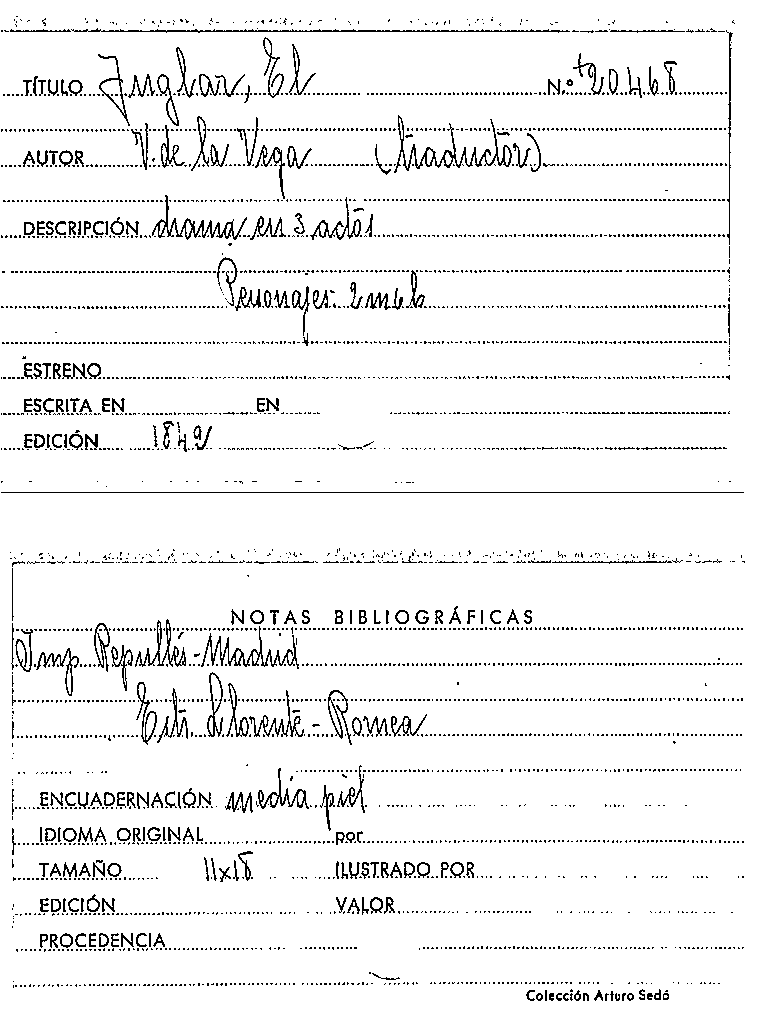 TÍTULO Juglar, El N.º +20468
AUTOR V. de la Vega (traductor).
DESCRIPCIÓN drama en 3 actos
Personajes: 2 m 6 h
ESTRENO
ESCRITA EN EN
EDICIÓN 1849
NOTAS BIBLIOGRÁFICAS
Imp. Repullés - Madrid
Estr. Llorente - Romea
ENCUADERNACIÓN media piel
IDIOMA ORIGINAL por
TAMAÑO 11x18 ILUSTRADO POR
EDICIÓN VALOR
PROCEDENCIA
Colección Arturo Sedó